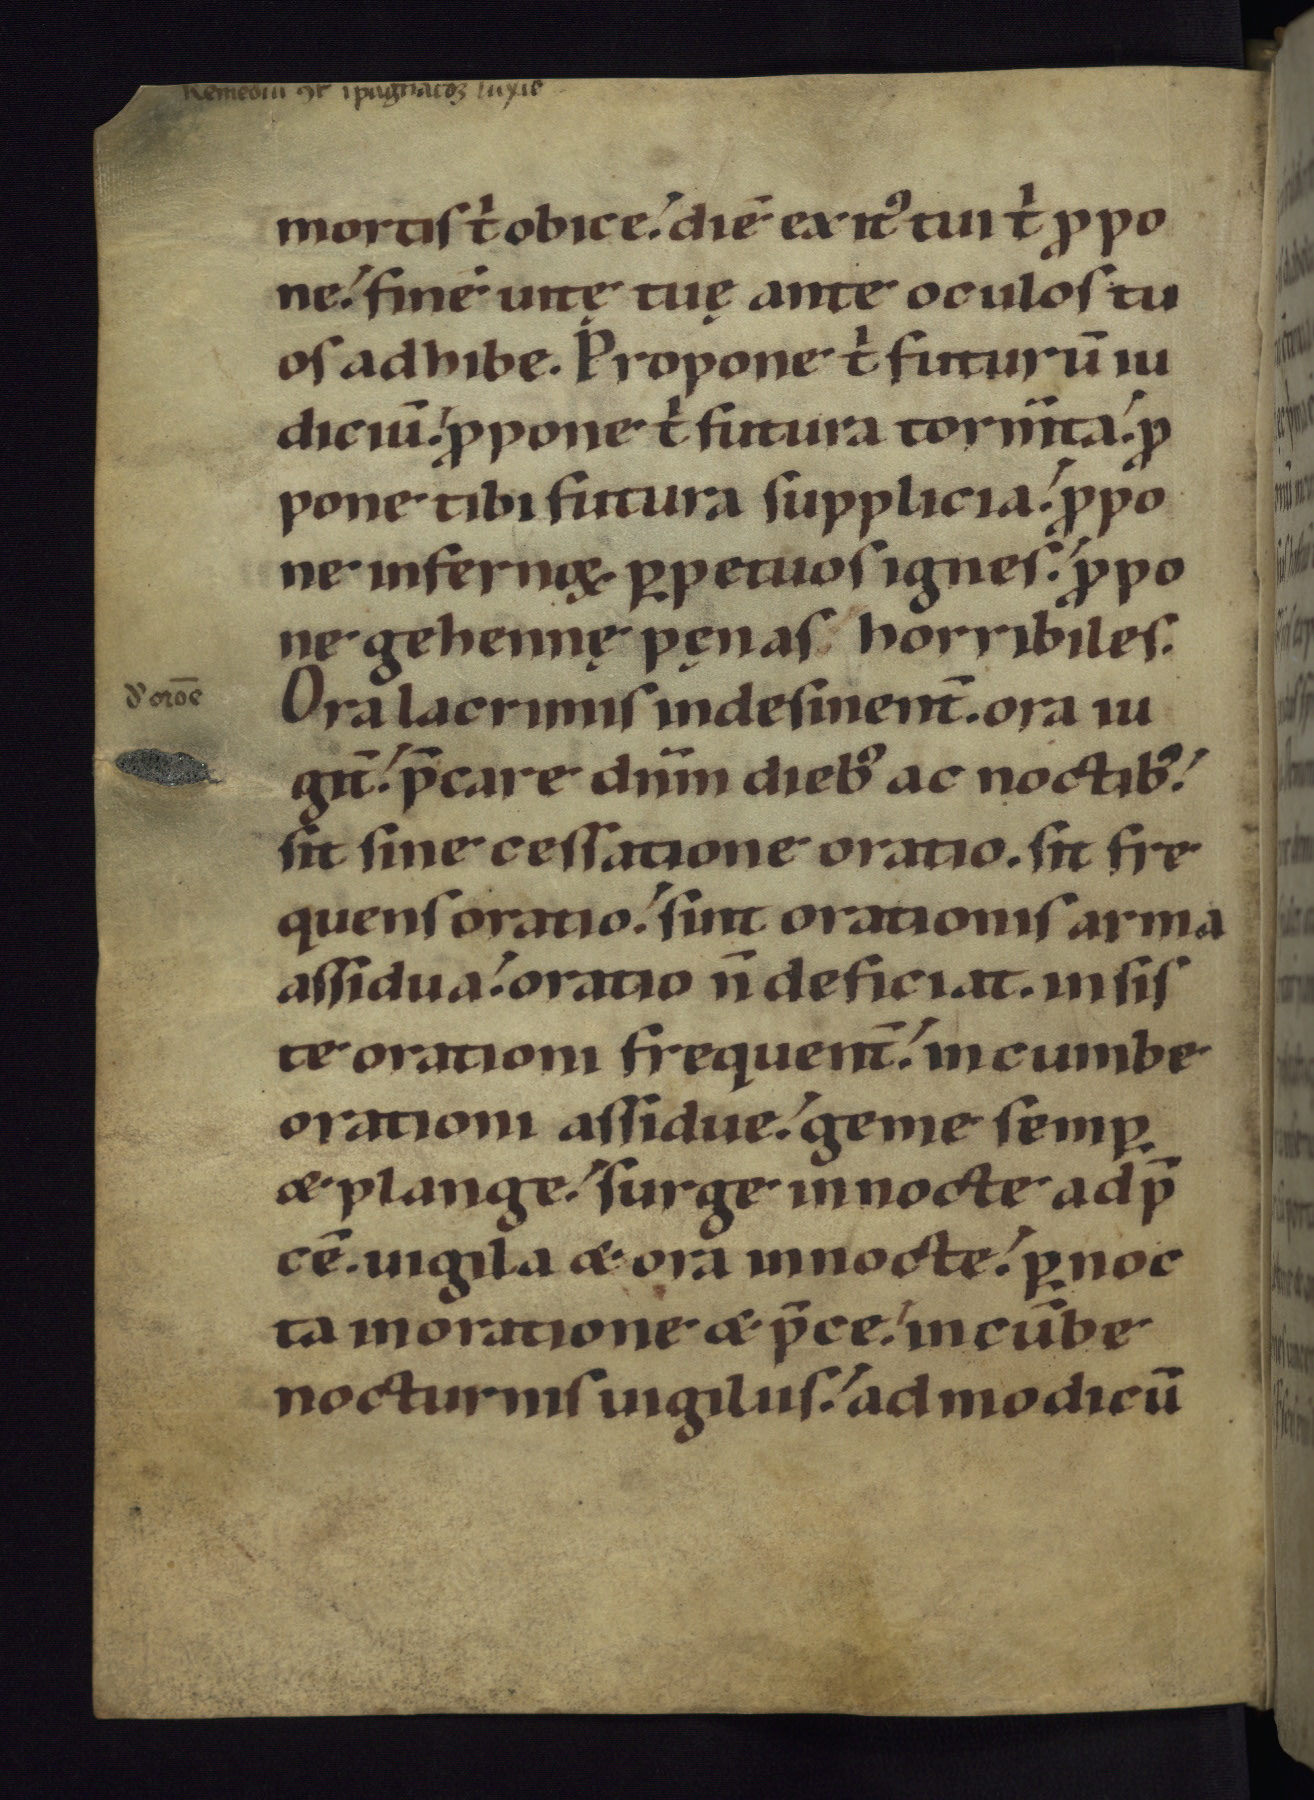 mortis t̉ obice. diē exit᷒ tui t̉ ꝓpo
ne. finē uitę tuę ante oculos tu
os adhibe. Propone t̉ futurū iu
diciū. ꝓpone t̉ futura torm̄ta. ꝓ
pone tibi futura supplicia. ꝓpo
ne infernoꝝ ꝑpetuos ignes. ꝓpo
ne gehennę pęnas horribiles.
d᷒ orōe
Ora lacrimis indesinent̄. ora iu
git̄. p̄care dn̄m dieb᷒ ac noctib᷒.
sit sine cessatione oratio. sit fre
quens oratio. sint orationis arma
assidua. oratio n̄ deficiat. insis
te orationi frequent̄. incumbe
orationi assidue. geme semꝑ
& plange. surge in nocte ad p̄
cē. uigila & ora in nocte. ꝑnoc
ta in oratione & p̄ce. incūbe
nocturnis uigiliis. ad modicū